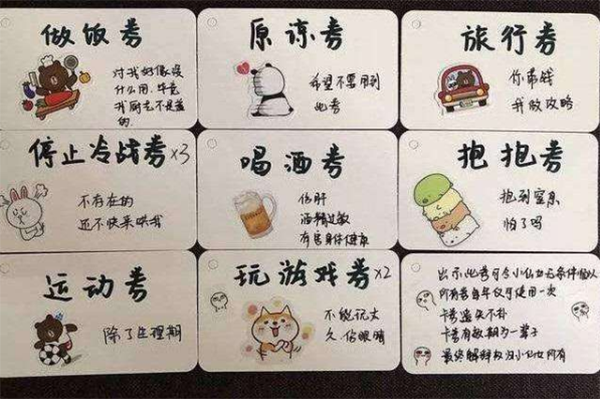 做饭券
对我好像没
什么用，毕竟
我厨艺不是盖
的
原谅券
希望不要用到
此券
旅行券
你带钱
我做攻略
停止冷战券×3
不存在的
还不快来哄我
喝酒券
伤肝
酒精过敏
有害身体健康
抱抱券
抱到窒息
怕了吗
运动券
除了生理期
玩游戏券×2
不能玩太
久伤眼睛
出示此券可令小仙女无条件依人
所有券当年仅可使用一次
卡券遗失不补
卡券有效期为一辈子
最终解释权归小仙女所有